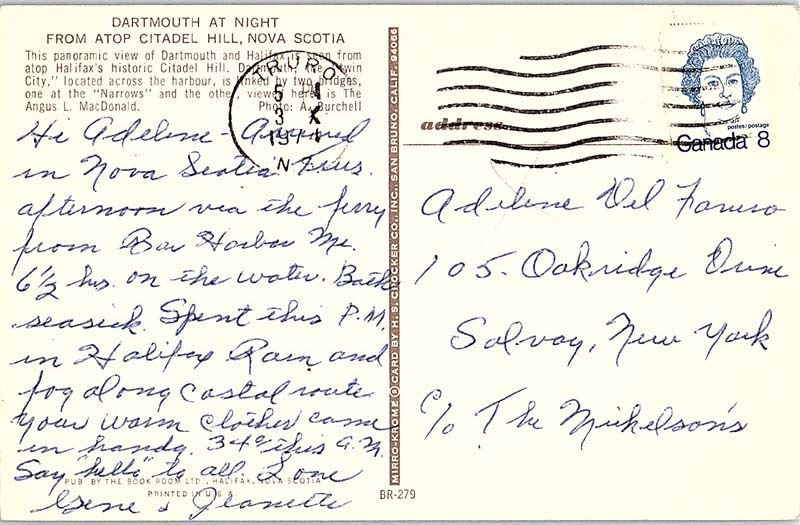 DARTMOUTH AT NIGHT
FROM ATOP CITADEL HILL, NOVA SCOTIA
This panoramic view of Dartmouth and Halifax is seen from
atop Halifax's historic Citadel Hill. Dartmouth, the "Twin
City," located across the harbour, is linked by two bridges,
one at the "Narrows" and the other, viewed here, is The
Angus L. MacDonald. Photo: A. Burchell
Hi Adeline - Arrived
in Nova Scotia Thurs.
afternoon via the ferry
from Bar Harbor Me.
6½ hrs. on the water. Both
seasick. Spent this P.M.
in Halifax Rain and
fog along costal route
your warm clothes came
in handy. 34° this A.M.
Say "hello" to all. Love
Gene & Jeanette
PUB. BY THE BOOK ROOM LTD., HALIFAX, NOVA SCOTIA
PRINTED IN U.S.A.
BR-279
MIRRO-KROME ® CARD BY H. S. CROCKER CO., INC., SAN BRUNO, CALIF. 94066
TRURO
3 X
197
N
address
postes/postage
Canada 8
Adeline Del
105 - Oakridge Drive
Solvay, New York
c/o The Mikelson's